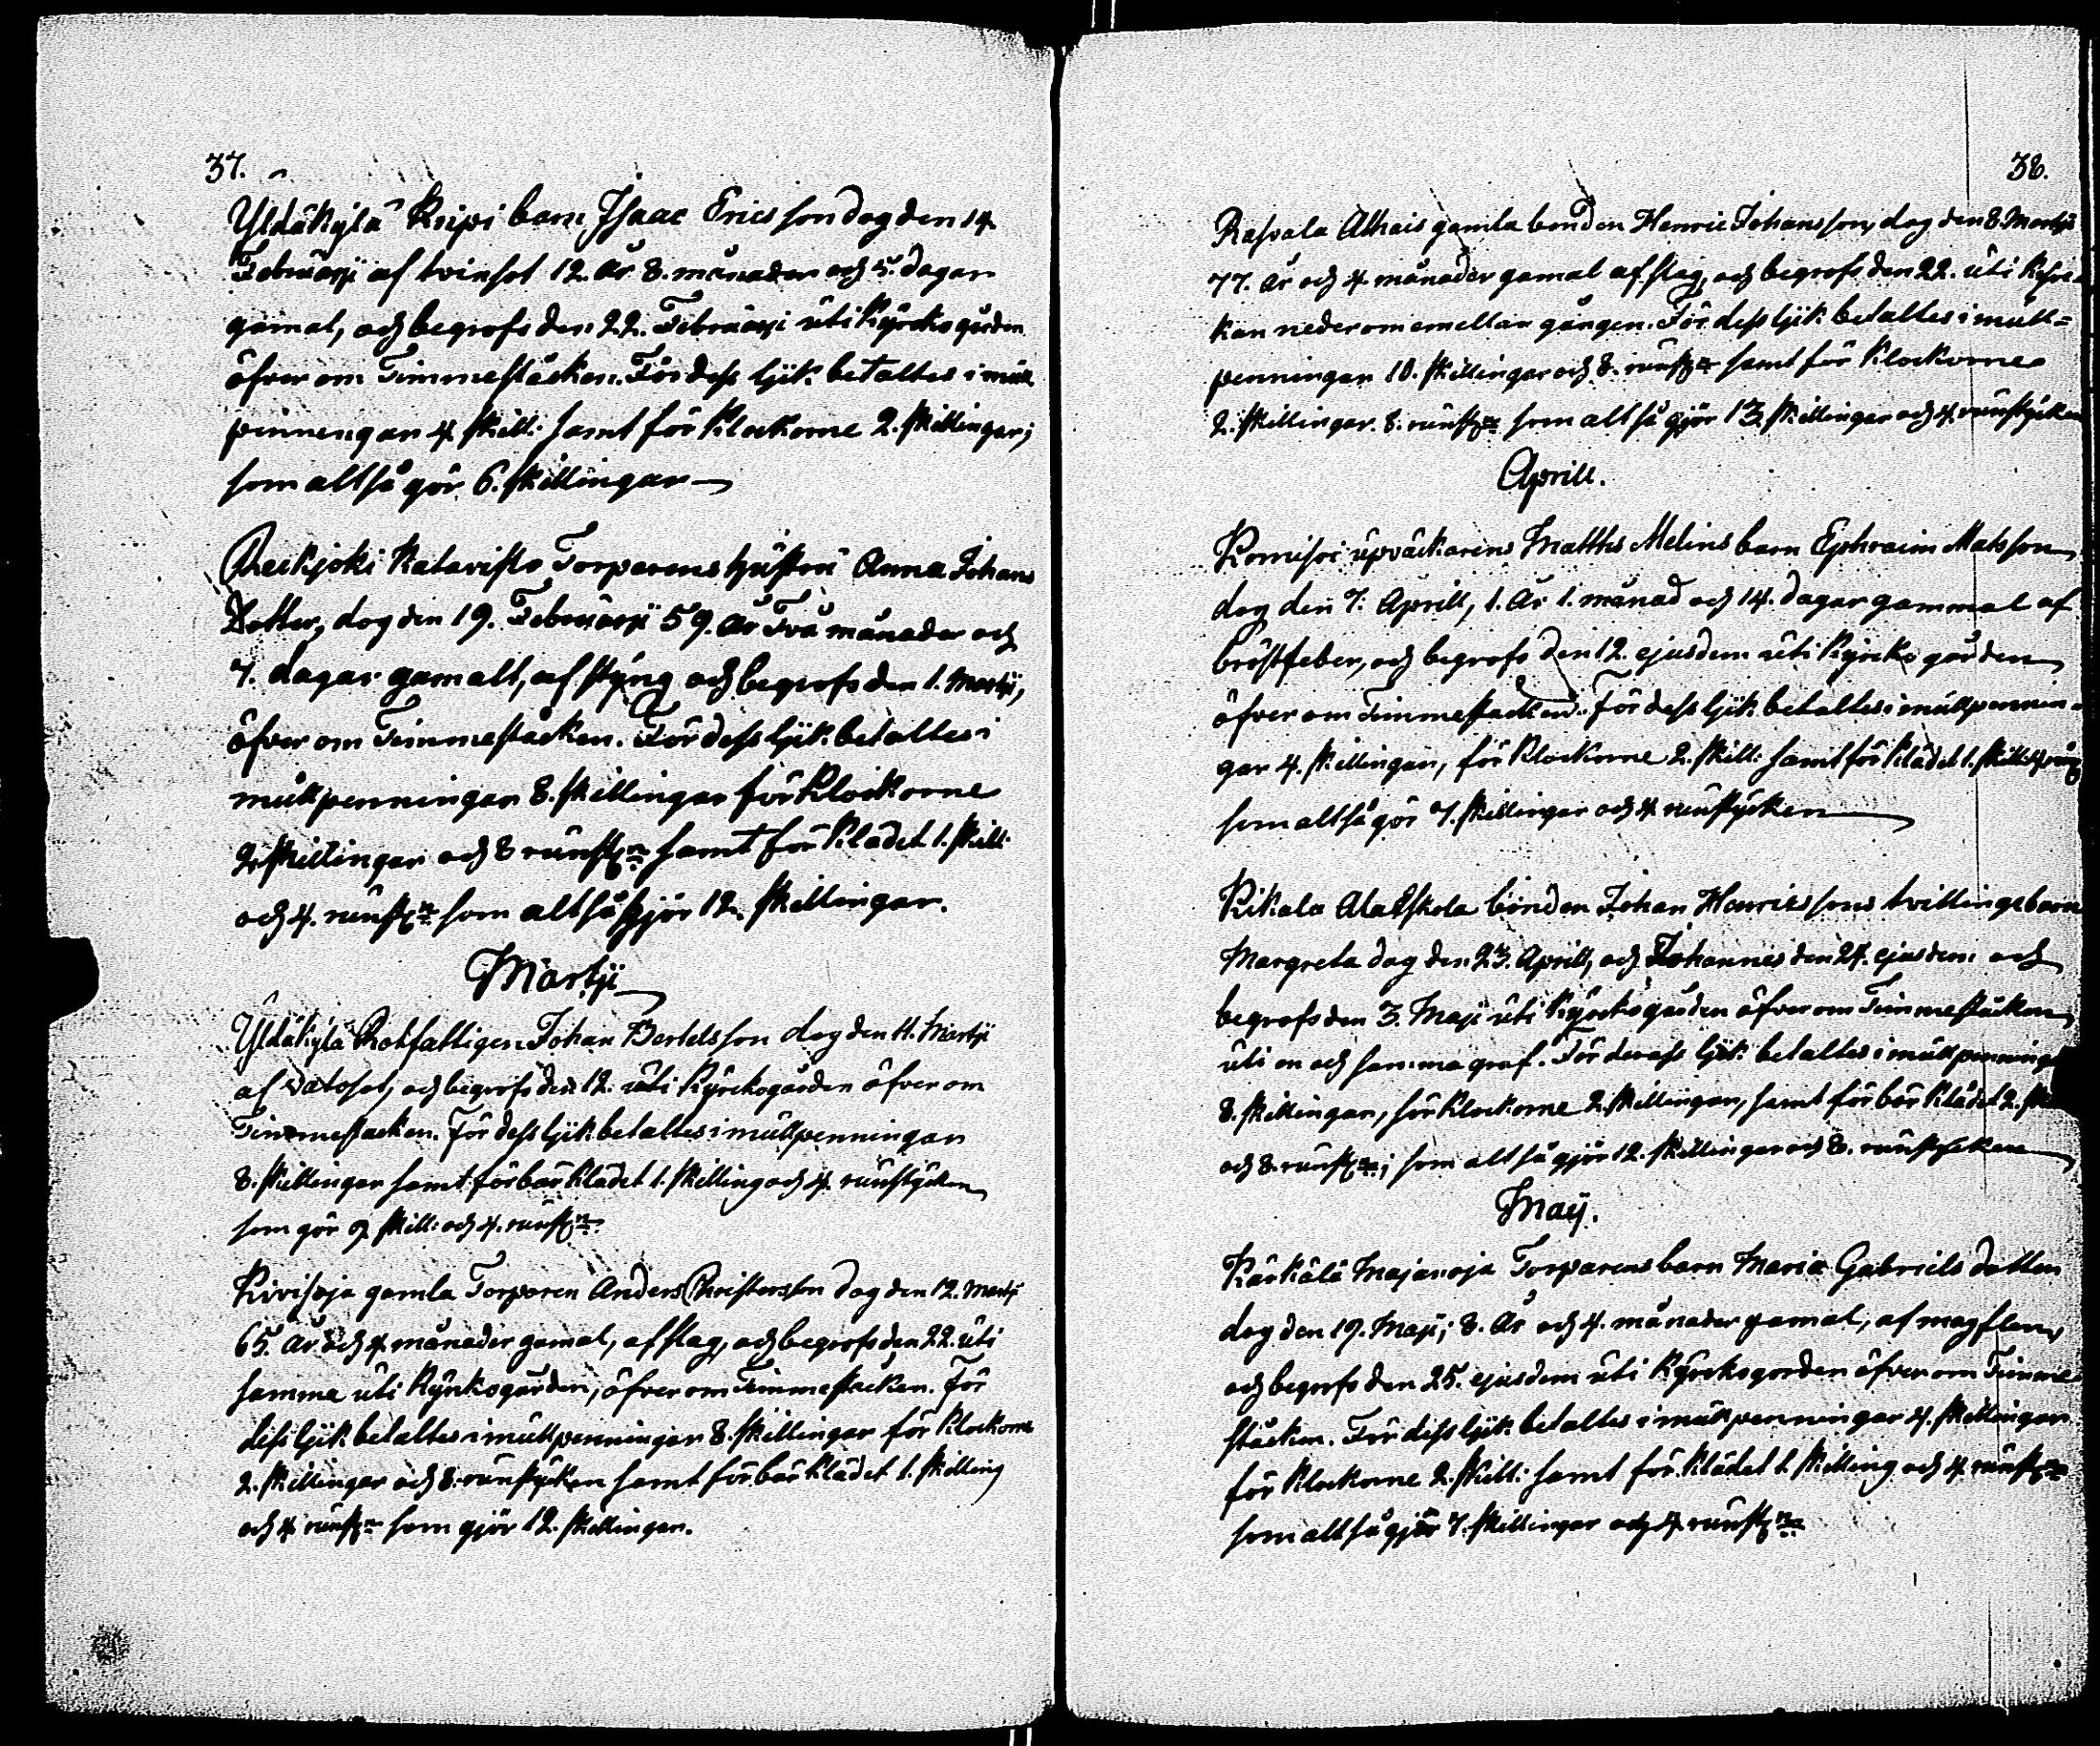 37.
Yldäkylä Knipi barn Isaac Ericsson dog den 14
Februarji af tvinsot 12. år 8. månader och 5. dagar
gamal, och begrofs den 22. Februarji uti Kyrckogården
öfver om Timmestäcken. För dess ljik betaltes i mull
penningar 4 skill: samt för Klockorne 2. skillingar;
som altså gör 6. skillingar
Katavisto Torparens hustru Anna Johans
Dotter, dog den 19. Februarji 59. år Två månader och
7. dagar gamalt, af styng och begrofs den 1. Martji,
öfver om Timmestäcken. För dess ljik betaltes i
mullpenningar 8. skillingar för Klockorne
2. skillingar och 8 runst:r samt för Klädet 1. skill:
och 4. runst:r som altså gjör 12. skillingar.
Martji
Yldäkylä Rotfattigen Johan Bertelsson dog den 11. Martji
af Vatsot, och begrofs den 12. uti Kyrckogården öfver om
Timmestacken. För dess ljik betaltes i mullpenningar
8. skillingar samt för bår Klädet 1. skilling och 4. runstycken
som gör 9 skill: och 4. runst:r
Kivisoja gamla Torparen Anders Christersson dog den 12. Martji
65. år och 4 månader gamal, af slag, och begrofs den 22. uti
samma uti Kyrkogården, öfver om Timmestacken. För
dess ljik betaltes i mullpenningar 8. skillingar för Klockorne
2. skillingar och 8. runstycken samt för bår Klädet 1. skilling
och 4 runst:r som gjör 12. skillingar.
38.
Rasvala Alhais gamla bonden Henric Johansson, dog den 8. Martji
77. år och 4. månader gamal af slag, och begrofs den 22. uti Kyrc
kan neder om emellan gången. För dess ljik betaltes i mull=
penningar 10. skillingar och 8. runst:r samt för Klockorne
2. skillingar. 8. runst:r som altså gjör 13. skillingar och 4. runstycken
Aprill.
Komisoi upväckarens Matths Melins barn Ephraim Matsson
dog den 7. Aprill, 1. år 1. månad och 14. dagar gammal af
bröstfeber, och begrofs den 12. ejusdem uti Kyrcko gården
öfver om Timmestacken. För dess ljik betaltes i mullpennin=
gar 4. skillingar, för Klockorne 2. skill: samt för Klädet 1. skill: 4 runst
som altså gör 7. skillingar och 4 runstycken
Kikala Alatskola bonden Johan Henricssons tvillingebarn
Margreta dog den 23. Aprill, och Johannes den 24. ejusdem och
begrofs den 3. Maji uti Kyrckogården öfver om Timmestäcken
uti en och samma graf. För derass ljik betaltes i mullpenninga
8. skillingar, för Klockorne 2. skillingar, samt för bår Klädet 2. sk
och 8. runst:r; som altså gjör 12. skillingar och 8. runstycken
Maij.
Kärkälä Majanoja Torparens barn Maria Gabriels dotter
dog den 19. Maji; 8. år och 4. månader gamal, af
och begrofs den 25. ejusdem uti Kyrckogården öfver om Timme
stäcken. För dess ljik betaltes i mullpenningar 4. skillingar
för Klockorne 2. skill: samt för Klädet 1. skilling och 4 runst:r
som altså gjör 7. skillingar och 4 runst:r